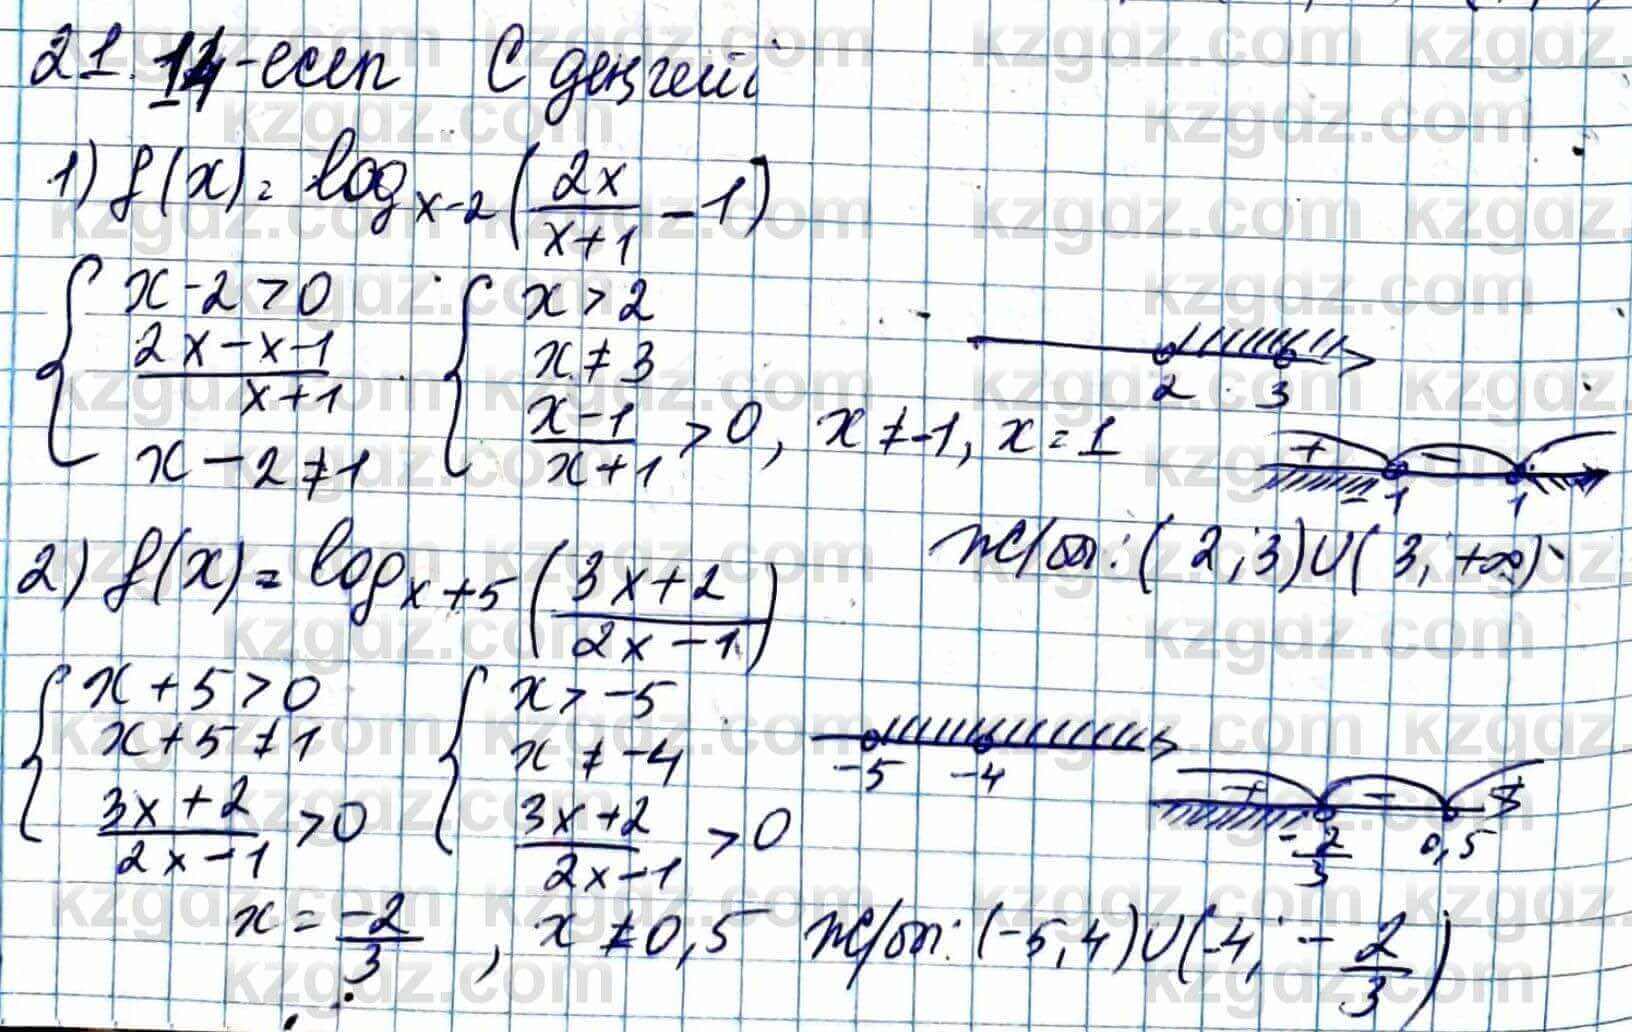 21.14-есеп С деңгейі
1) f(x) = log_{x-2} (2x/(x+1) - 1)
{ x-2>0 { x>2
(2x-x-1)/(x+1) x≠3
x-2≠1 (x-1)/(x+1) > 0, x≠-1, x=1
2 3
+ - -1 1
Ж/бы: (2;3)∪(3;+∞)
2) f(x) = log_{x+5} ((3x+2)/(2x-1))
{ x+5>0 { x>-5
x+5≠1 x≠-4
(3x+2)/(2x-1) >0 (3x+2)/(2x-1) >0
-5 -4
+ - + -2/3 0,5
x = -2/3, x≠0,5 Ж/бы: (-5,4)∪(-4; -2/3)
kzgdz.com